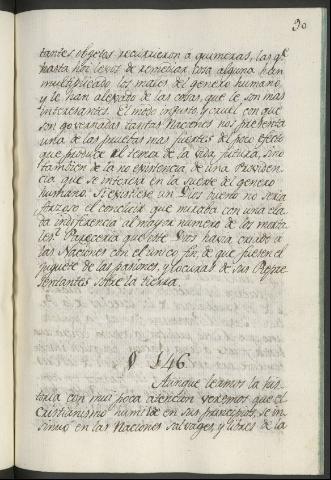 30
tantes objetos recurrieron a quimeras, las qe
hasta hoi lexos de remediar cosa alguna han
multiplicado los males del genero humano,
y le han alexado de las cosas, que le son mas
interesantes. El modo injusto, y cruel con que
son governadas tantas Naciones nos presenta
una de las pruebas mas fuertes del poco efecto
que produce el temor de la vida futura, sino
tambien de la no existencia de una Providen-
cia que se interesa en la suerte del genero
humano. Si existiese un Dios bueno no seria
forzoso el concluir que miraba con una
indiferencia al mayor numero de los morta-
les? Pareceria que este Dios havia criado a
las Naciones con el unico fin, de que fuesen el
juguete de las pasiones, y locuras de sus Repre-
sentantes sobre la tierra.
§ 146
Aunque leamos la his-
toria con mui poca atencion veremos que el
Cristianismo humilde en sus principios, se in-
sinuó en las Naciones salvages, y libres de la